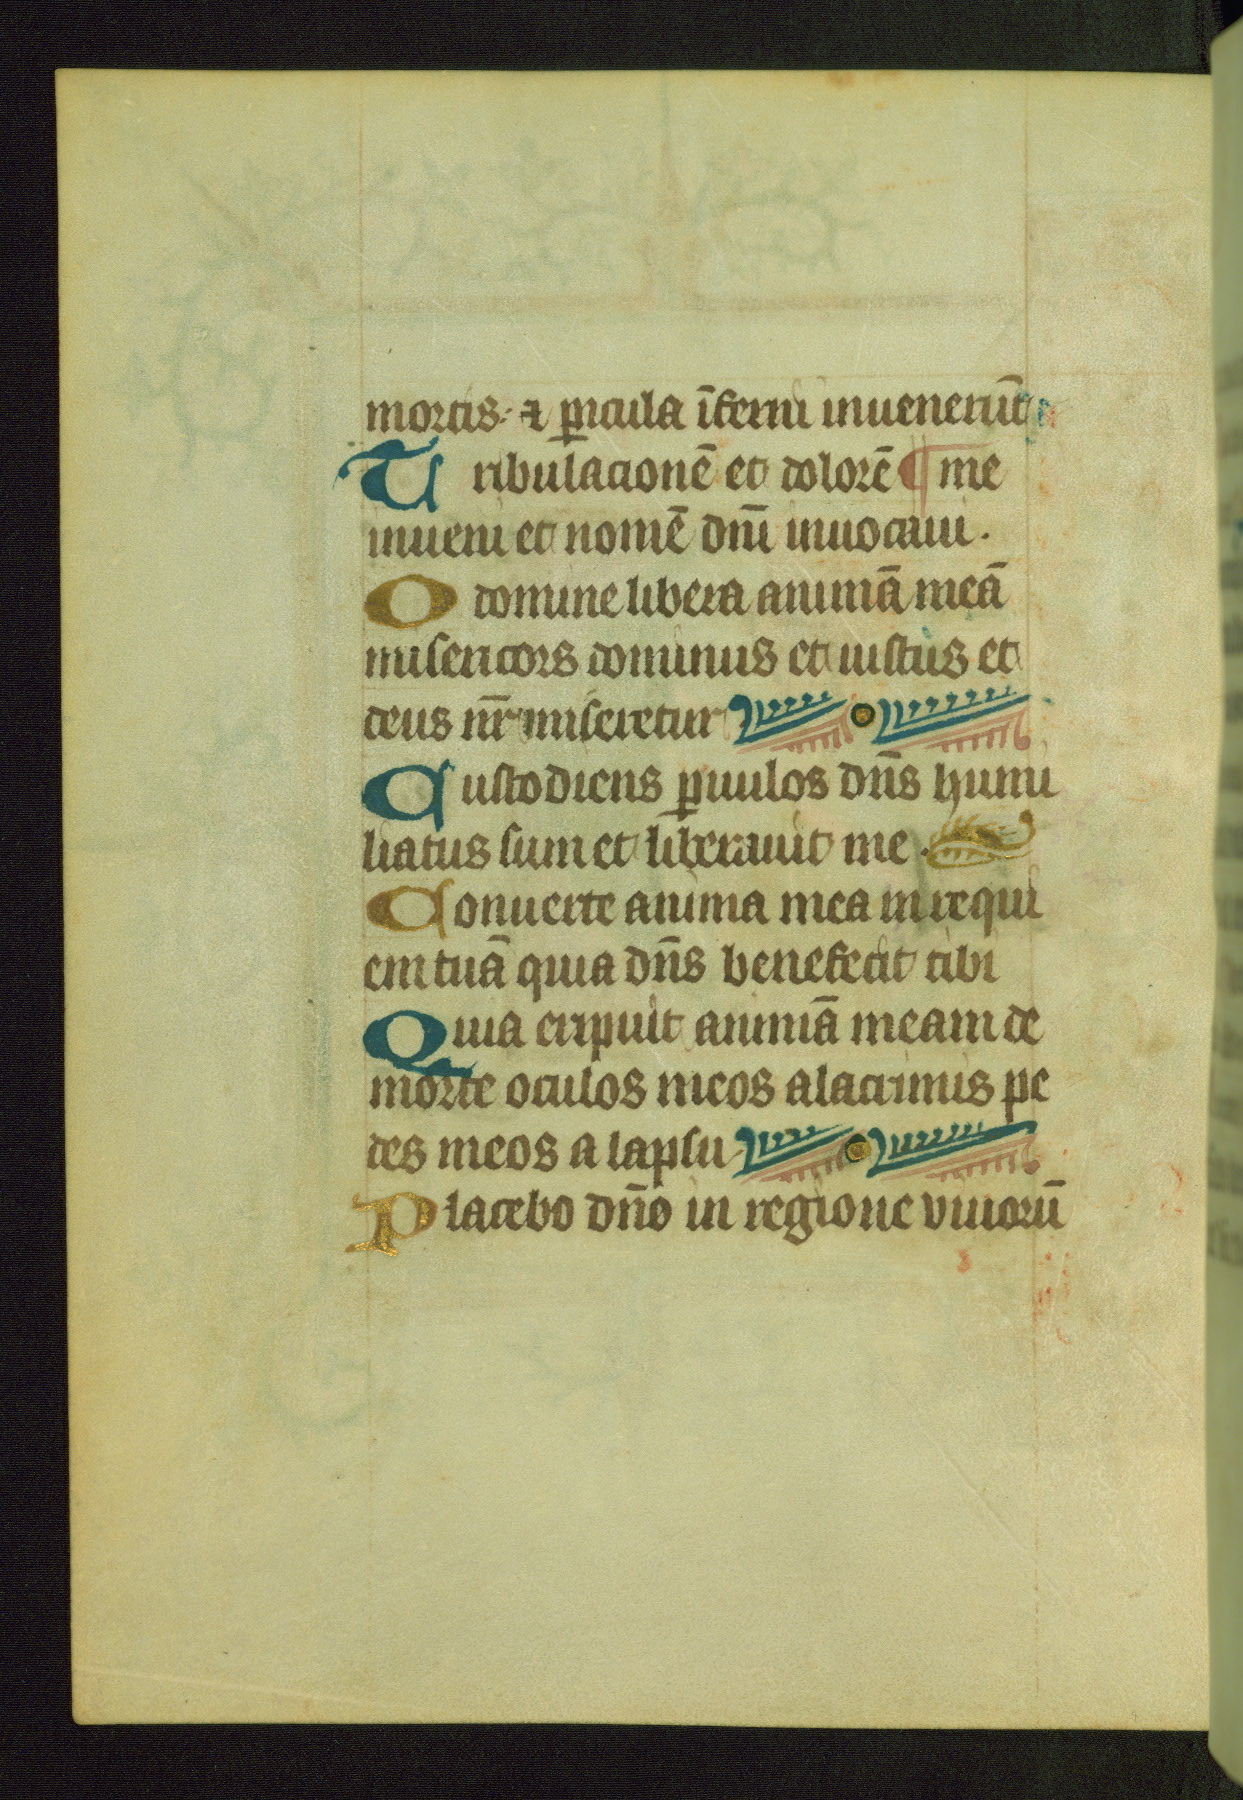 mortis · ⁊ ꝑicula īferni inuenerūt
Tribulacionē et dolorē ¶ me
inueni et nomē dnī inuocaui ·
O domine libera animā meā
misericors dominus et iustus et
deus nr̄ miseretur
Custodiens ꝑuulos dn̄s humi
liatus sum et liberauit me ·
Conuerte anima mea in requi
em tuā quia dn̄s benefecit tibi
Quia eripuit animā meam de
morte oculos meos a lacrimis pe
des meos a lapsu
Placebo dn̄o in regione viuorū